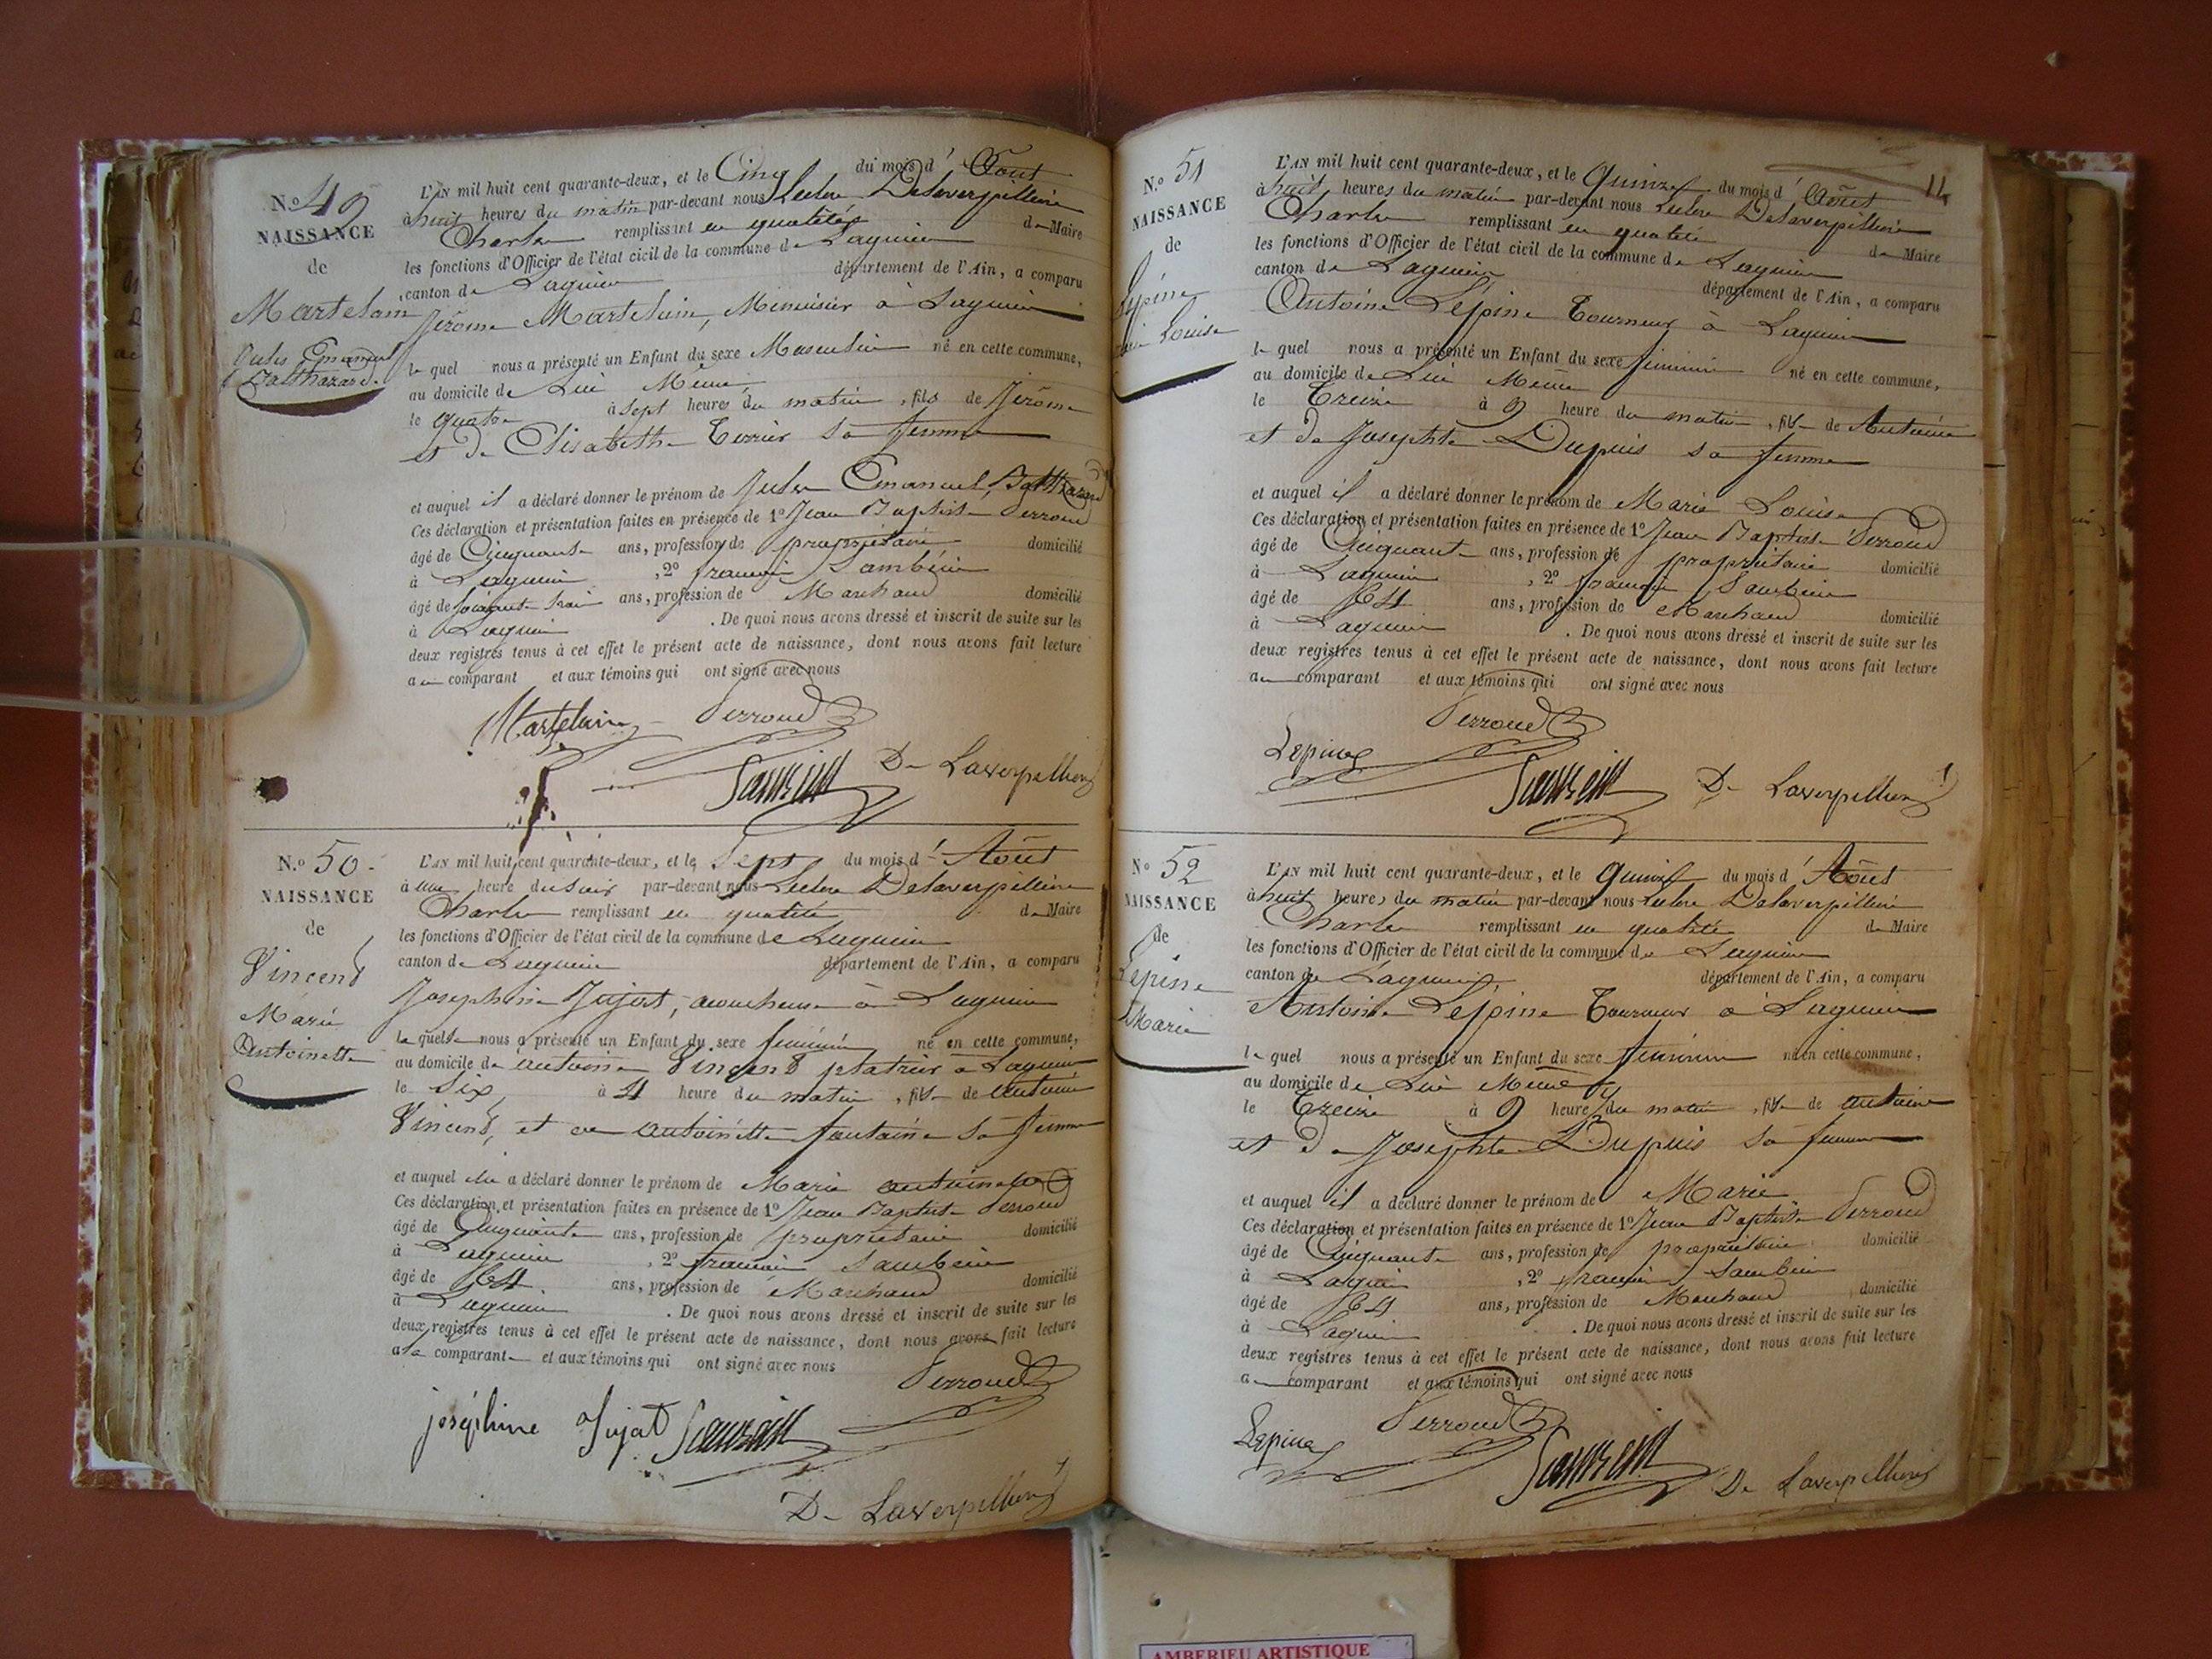 No 49
NAISSANCE
de
Martelain
Jules Emanuel
Balthazard.
L'AN mil huit cent quarante-deux, et le Cinq du mois d' Aout
à huit heures du matin par-devant nous Delaverpilliere
Charles remplissant en qualité de Maire
les fonctions d'Officier de l'état civil de la commune de Lagnieu
canton de Lagnieu département de l'Ain, a comparu
Jérome Martelain, Menuisier à Lagnieu
lequel nous a présenté un Enfant du sexe Masculin né en cette commune,
au domicile de Lui Même
le quatre à sept heures du matin, fils de Jérome
et de Elisabeth Terrier sa femme
et auquel il a déclaré donner le prénom de Jules Emanuel, Balthazard
Ces déclaration et présentation faites en présence de 1º Jean Baptiste Perroud
âgé de Cinquante ans, profession de propriétaire domicilié
à Lagnieu, 2º
âgé de ans, profession de Marchand domicilié
à Lagnieu. De quoi nous avons dressé et inscrit de suite sur les
deux registres tenus à cet effet le présent acte de naissance, dont nous avons fait lecture
au comparant et aux témoins qui ont signé avec nous
Martelain Perroud
De Laverpilliere
No 50
NAISSANCE
de
Vincent
Marie
Antoinette
L'AN mil huit cent quarante-deux, et le Sept du mois d' Août
à une heure du soir par-devant nous Delaverpilliere
Charles remplissant en qualité de Maire
les fonctions d'Officier de l'état civil de la commune de Lagnieu
canton de Lagnieu département de l'Ain, a comparu
Josephine Jujat, acoucheuse à Lagnieu
laquelle nous a présenté un Enfant du sexe féminin né en cette commune,
au domicile de antoine Vincent platrier à Lagnieu
le Six à 4 heure du matin, fils de antoine
Vincent, et de antoinette fontaine sa femme
et auquel elle a déclaré donner le prénom de Marie antoinette
Ces déclaration et présentation faites en présence de 1º Jean Baptiste Perroud
âgé de Cinquante ans, profession de propriétaire domicilié
à Lagnieu, 2º
âgé de 64 ans, profession de Marchand domicilié
à Lagnieu. De quoi nous avons dressé et inscrit de suite sur les
deux registres tenus à cet effet le présent acte de naissance, dont nous avons fait lecture
a la comparante et aux témoins qui ont signé avec nous
Perroud
joséphine Jujat
De Laverpilliere
14
No 51
NAISSANCE
de
Lépine
Louise
L'AN mil huit cent quarante-deux, et le Quinze du mois d' Août
à huit heures du matin par-devant nous Delaverpilliere
Charles remplissant en qualité de Maire
les fonctions d'Officier de l'état civil de la commune de Lagnieu
canton de Lagnieu département de l'Ain, a comparu
Antoine Lépine Tourneur à Lagnieu
lequel nous a présenté un Enfant du sexe féminin né en cette commune,
au domicile de Lui Même
le Treize à 9 heure du matin, fils de Antoine
et de Josephte Dupuis sa femme
et auquel il a déclaré donner le prénom de Marie Louise
Ces déclaration et présentation faites en présence de 1º Jean Baptiste Perroud
âgé de Cinquante ans, profession de propriétaire domicilié
à Lagnieu, 2º
âgé de 64 ans, profession de Marchand domicilié
à Lagnieu. De quoi nous avons dressé et inscrit de suite sur les
deux registres tenus à cet effet le présent acte de naissance, dont nous avons fait lecture
au comparant et aux témoins qui ont signé avec nous
Perroud
Lepine
De Laverpilliere
No 52
NAISSANCE
de
Lépine
Marie
L'AN mil huit cent quarante-deux, et le quinze du mois d' Août
à huit heures du matin par-devant nous Delaverpilliere
Charles remplissant en qualité de Maire
les fonctions d'Officier de l'état civil de la commune de Lagnieu
canton de Lagnieu département de l'Ain, a comparu
Antoine Lépine Tourneur à Lagnieu
lequel nous a présenté un Enfant du sexe féminin né en cette commune,
au domicile de Lui Même
le Treize à 9 heures du matin, fils de antoine
et de Josephte Dupuis sa femme
et auquel il a déclaré donner le prénom de Marie
Ces déclaration et présentation faites en présence de 1º Jean Baptiste Perroud
âgé de Cinquante ans, profession de propriétaire domicilié
à Lagnieu, 2º
âgé de 64 ans, profession de Marchand domicilié
à Lagnieu. De quoi nous avons dressé et inscrit de suite sur les
deux registres tenus à cet effet le présent acte de naissance, dont nous avons fait lecture
au comparant et aux témoins qui ont signé avec nous
Perroud
Lepine
De Laverpilliere
AMBERIEU ARTISTIQUE